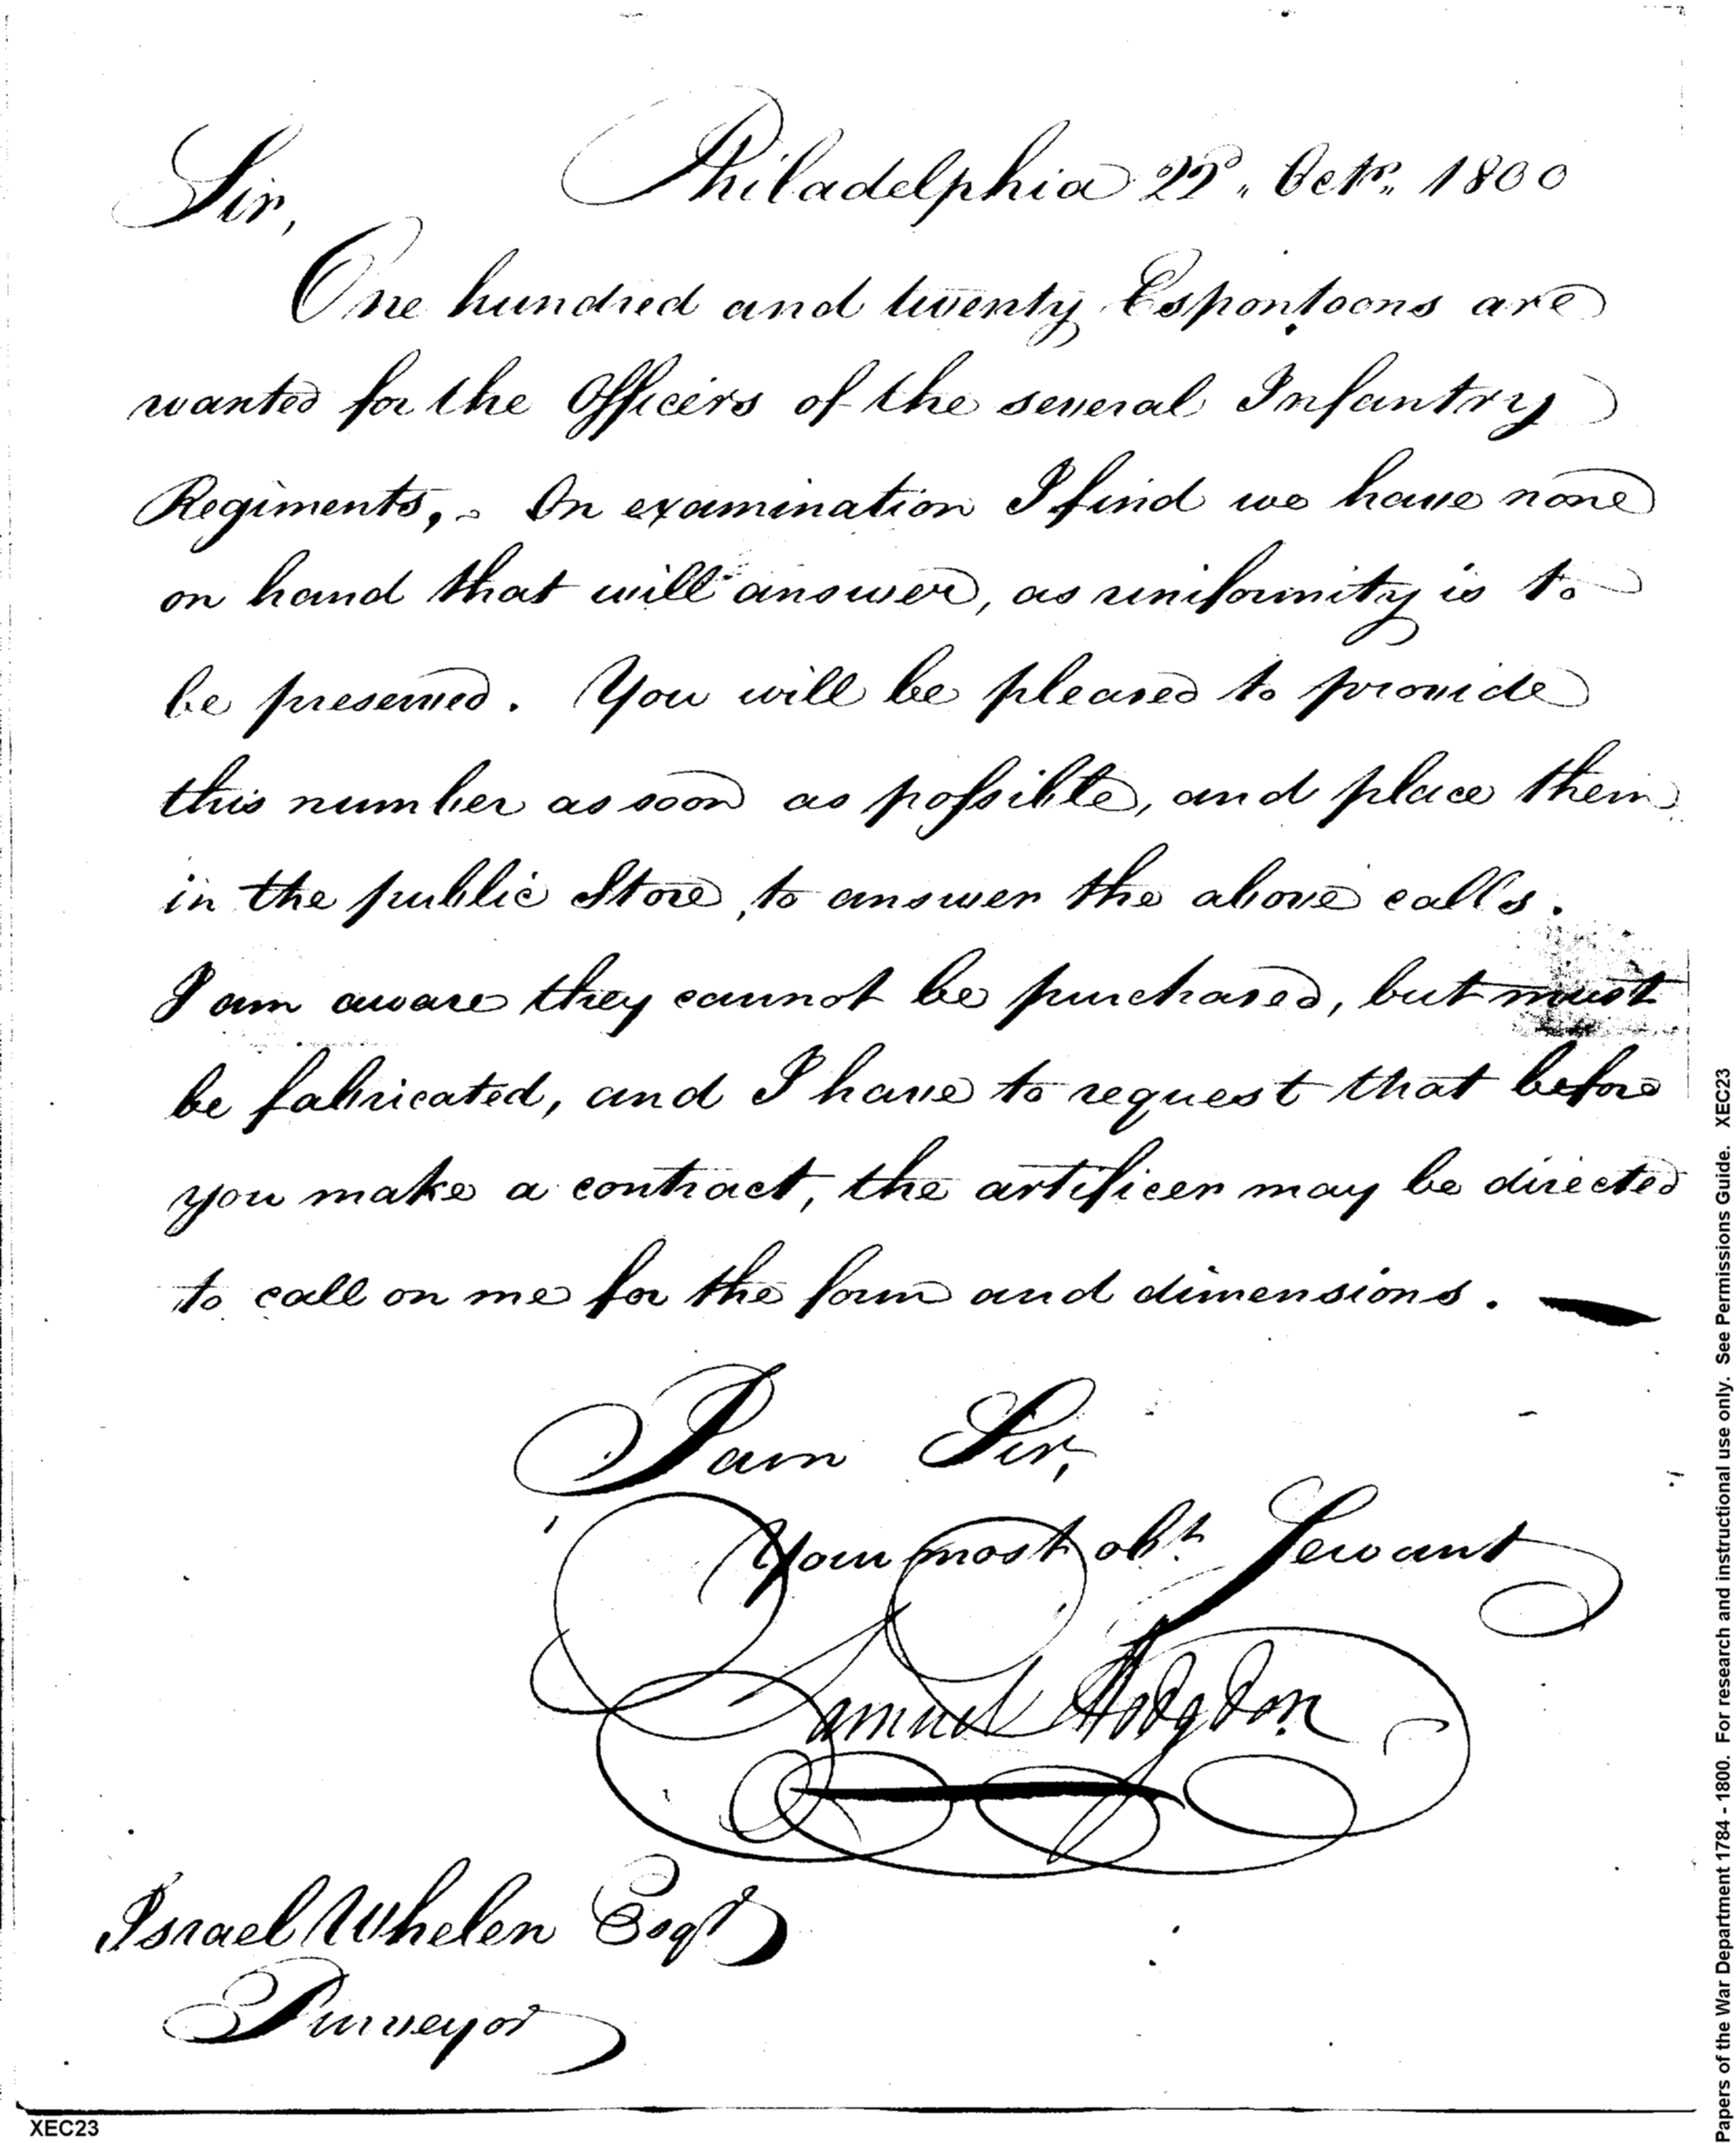 Philadelphia 22d. Octr. 1800
Sir,
One hundred and twenty Espontoons are
wanted for the Officers of the several Infantry
Regiments, - On examination I find we have none
on hand that will answer, as uniformity is to
be preserved. You will be pleased to provide
this number as soon as possible, and place them
in the public Store, to answer the above calls.
I am aware they cannot be purchased, but must
be fabricated, and I have to request that before
you make a contract, the artificer may be directed
to call on me for the form and dimensions. —
I am Sir,
Your most obt. Servant
Samuel Hodgdon
Israel Whelen Esqr
Purveyor
XEC23
Papers of the War Department 1784 - 1800. For research and instructional use only. See Permissions Guide. XEC23